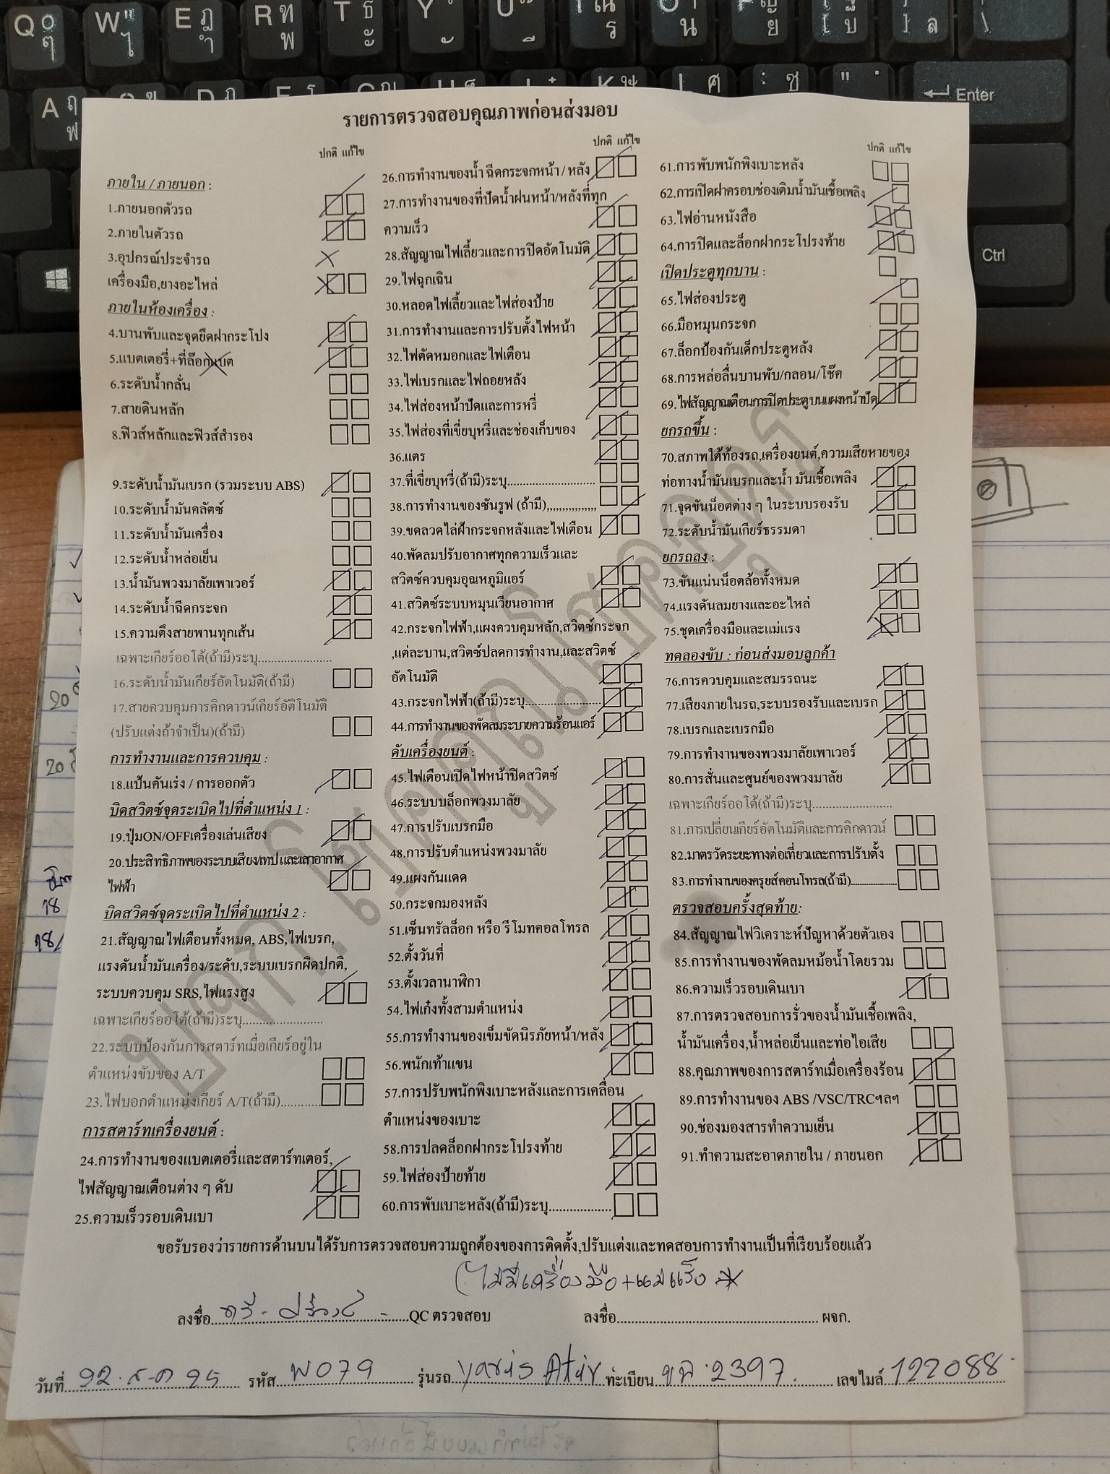 รายการตรวจสอบคุณภาพก่อนส่งมอบ
ปกติ แก้ไข
ภายใน / ภายนอก :
1.ภายนอกตัวรถ
2.ภายในตัวรถ
3.อุปกรณ์ประจำรถ
เครื่องมือ,ยางอะไหล่
ภายในห้องเครื่อง :
4.บานพับและจุดยึดฝากระโปง
5.แบตเตอรี่+ที่ล๊อกแบต
6.ระดับน้ำกลั่น
7.สายดินหลัก
8.ฟิวส์หลักและฟิวส์สำรอง
9.ระดับน้ำมันเบรก (รวมระบบ ABS)
10.ระดับน้ำมันคลัตช์
11.ระดับน้ำมันเครื่อง
12.ระดับน้ำหล่อเย็น
13.น้ำมันพวงมาลัยพาเวอร์
14.ระดับน้ำฉีดกระจก
15.ความตึงสายพานทุกเส้น
เฉพาะเกียร์ออโต้(ถ้ามี)ระบุ
16.ระดับน้ำมันเกียร์อัตโนมัติ(ถ้ามี)
17.สายควบคุมการคิกดาวน์เกียร์อัติโนมัติ
(ปรับแต่งถ้าจำเป็น)(ถ้ามี)
การทำงานและการควบคุม :
18.แป้นคันเร่ง / การออกตัว
บิดสวิตซ์จุดระเบิดไปที่ตำแหน่ง 1 :
19.ปุ่มON/OFFเครื่องเล่นเสียง
20.ประสิทธิภาพของระบบเสียงเทป และเสาอากาศ
ไฟฟ้า
บิดสวิตซ์จุดระเบิดไปที่ตำแหน่ง 2 :
21.สัญญาณไฟเตือนทั้งหมด, ABS,ไฟเบรก,
แรงดันน้ำมันเครื่อง/ระดับ,ระบบเบรกผิดปกติ,
ระบบควบคุม SRS,ไฟแรงสูง
เฉพาะเกียร์ออโต้(ถ้ามี)ระบุ
22.ระบบป้องกันการสตาร์ทเมื่อเกียร์อยู่ใน
ตำแหน่งขับของ A/T
23.ไฟบอกตำแหน่งเกียร์ A/T(ถ้ามี)
การสตาร์ทเครื่องยนต์ :
24.การทำงานของแบตเตอรี่และสตาร์ทเตอร์,
ไฟสัญญาณเตือนต่าง ๆ ดับ
25.ความเร็วรอบเดินเบา
ปกติ แก้ไข
26.การทำงานของน้ำ ฉีดกระจกหน้า / หลัง
27.การทำงานของที่ปัดน้ำฝนหน้า/หลังที่ทุก
ความเร็ว
28.สัญญาณไฟเลี้ยวและการปิดอัตโนมัติ
29.ไฟฉุกเฉิน
30.หลอดไฟเลี้ยวและไฟส่องป้าย
31.การทำงานและการปรับตั้งไฟหน้า
32.ไฟตัดหมอกและไฟเตือน
33.ไฟเบรกและไฟถอยหลัง
34.ไฟส่องหน้าปัดและการหรี่
35.ไฟส่องที่เขี่ยบุหรี่และช่องเก็บของ
36.แตร
37.ที่เขี่ยบุหรี่(ถ้ามี)ระบุ
38.การทำงานของซันรูฟ (ถ้ามี)
39.ขดลวดไล่ฝ้ากระจกหลังและไฟเตือน
40.พัดลมปรับอากาศทุกความเร็วและ
สวิตซ์ควบคุมอุณหภูมิแอร์
41.สวิตซ์ระบบหมุนเวียนอากาศ
42.กระจกไฟฟ้า,แผงควบคุมหลัก,สวิตซ์กระจก
,แต่ละบาน,สวิตซ์ปลดการทำงาน,และสวิตซ์
อัตโนมัติ
43.กระจกไฟฟ้า(ถ้ามี)ระบุ
44.การทำงานของพัดลมระบายความร้อนแอร์
ดับเครื่องยนต์ :
45.ไฟเตือนเปิดไฟหน้าปิดสวิตซ์
46.ระบบบล็อกพวงมาลัย
47.การปรับเบรกมือ
48.การปรับตำแหน่งพวงมาลัย
49.แผงกันแดด
50.กระจกมองหลัง
51.เซ็นทรัลล็อก หรือ รีโมทคอลโทรล
52.ตั้งวันที่
53.ตั้งเวลานาฬิกา
54.ไฟเก๋งทั้งสามตำแหน่ง
55.การทำงานของเข็มขัดนิรภัยหน้า/หลัง
56.พนักเท้าแขน
57.การปรับพนักพิงเบาะหลังและการเคลื่อน
ตำแหน่งของเบาะ
58.การปลดล็อกฝากระโปรงท้าย
59.ไฟส่องป้ายท้าย
60.การพับเบาะหลัง(ถ้ามี)ระบุ
ปกติ แก้ไข
61.การพับพนักพิงเบาะหลัง
62.การเปิดฝาครอบช่องเติมน้ำมันเชื้อเพลิง
63.ไฟอ่านหนังสือ
64.การปิดและล็อกฝากระโปรงท้าย
เปิดประตูทุกบาน :
65.ไฟส่องประตู
66.มือหมุนกระจก
67.ล็อกป้องกันเด็กประตูหลัง
68.การหล่อลื่นบานพับ/กลอน/โช๊ค
69.ไฟสัญญาณเตือนการปิดประตูบนแผงหน้าปัด
ยกรถขึ้น :
70.สภาพใต้ท้องรถ,เครื่องยนต์,ความเสียหายของ
ท่อทางน้ำมันเบรกและน้ำ มันเชื้อเพลิง
71.จุดขันน็อตต่าง ๆ ในระบบรองรับ
72.ระดับน้ำมันเกียร์ธรรมดา
ยกรถลง :
73.ขันแน่นน็อตล้อทั้งหมด
74.แรงดันลมยางและอะไหล่
75.ชุดเครื่องมือและแม่แรง
ทดลองขับ : ก่อนส่งมอบลูกค้า
76.การควบคุมและสมรรถนะ
77.เสียงภายในรถ,ระบบรองรับและเบรก
78.เบรกและเบรกมือ
79.การทำงานของพวงมาลัยเพาเวอร์
80.การสั่นและศูนย์ของพวงมาลัย
เฉพาะเกียร์ออโต้(ถ้ามี)ระบุ
81.การเปลี่ยนเกียร์อัตโนมัติและการคิกดาวน์
82.มาตรวัดระยะทางต่อเที่ยวและการปรับตั้ง
83.การทำงานของครุยส์คอนโทรล(ถ้ามี)
ตรวจสอบครั้งสุดท้าย:
84.สัญญาณไฟวิเคราะห์ปัญหาด้วยตัวเอง
85.การทำงานของพัดลมหม้อน้ำโดยรวม
86.ความเร็วรอบเดินเบา
87.การตรวจสอบการรั่วของน้ำมันเชื้อเพลิง,
น้ำมันเครื่อง,น้ำหล่อเย็นและท่อไอเสีย
88.คุณภาพของการสตาร์ทเมื่อเครื่องร้อน
89.การทำงานของ ABS /VSC/TRCฯลฯ
90.ช่องมองสารทำความเย็น
91.ทำความสะอาดภายใน / ภายนอก
ขอรับรองว่ารายการด้านบนได้รับการตรวจสอบความถูกต้องของการติดตั้ง,ปรับแต่งและทดสอบการทำงานเป็นที่เรียบร้อยแล้ว
(ไม่มีเครื่องมือ+แม่แรง
ลงชื่อ QC ตรวจสอบ ลงชื่อ ผจก.
วันที่ 22 ส.ค 25 รหัส W079 รุ่นรถ yaris Ativ ทะเบียน 2397 เลขไมล์ 122088
Enter
Ctrl